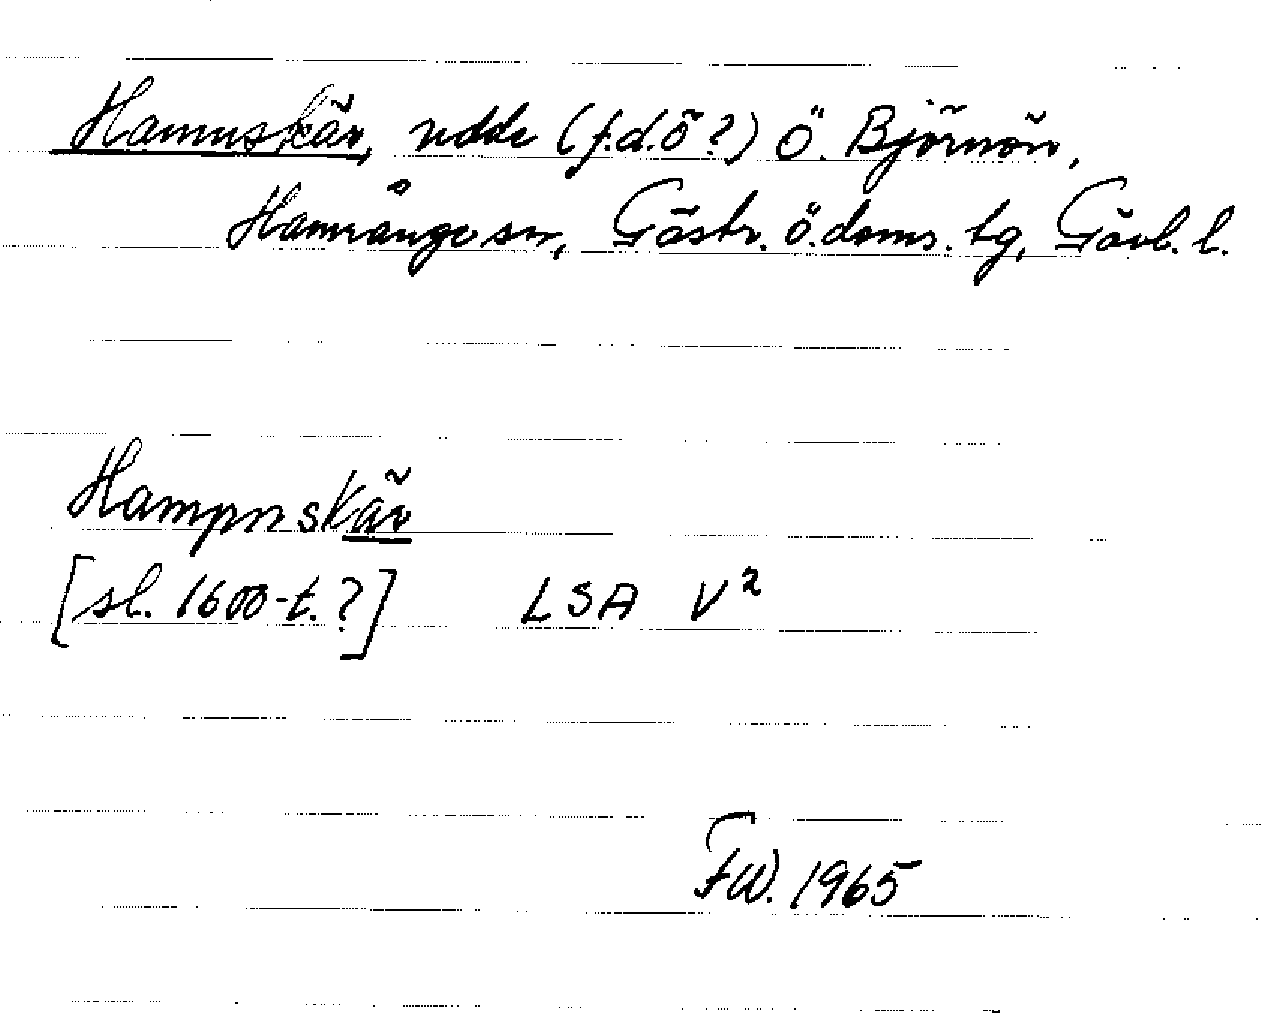 Hamnskär, udde (f.d. ö?) Ö. Björnön,
Hamrånge sn, Gästr. ö. doms. tg, Gävl. l.
Hampnskär
[sl. 1600-t.?] LSA V²
FW. 1965